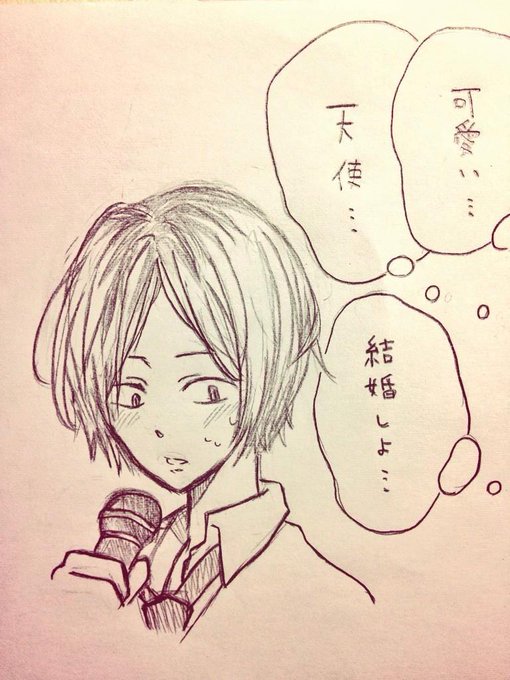 可愛い…
天使…
結婚しよ…